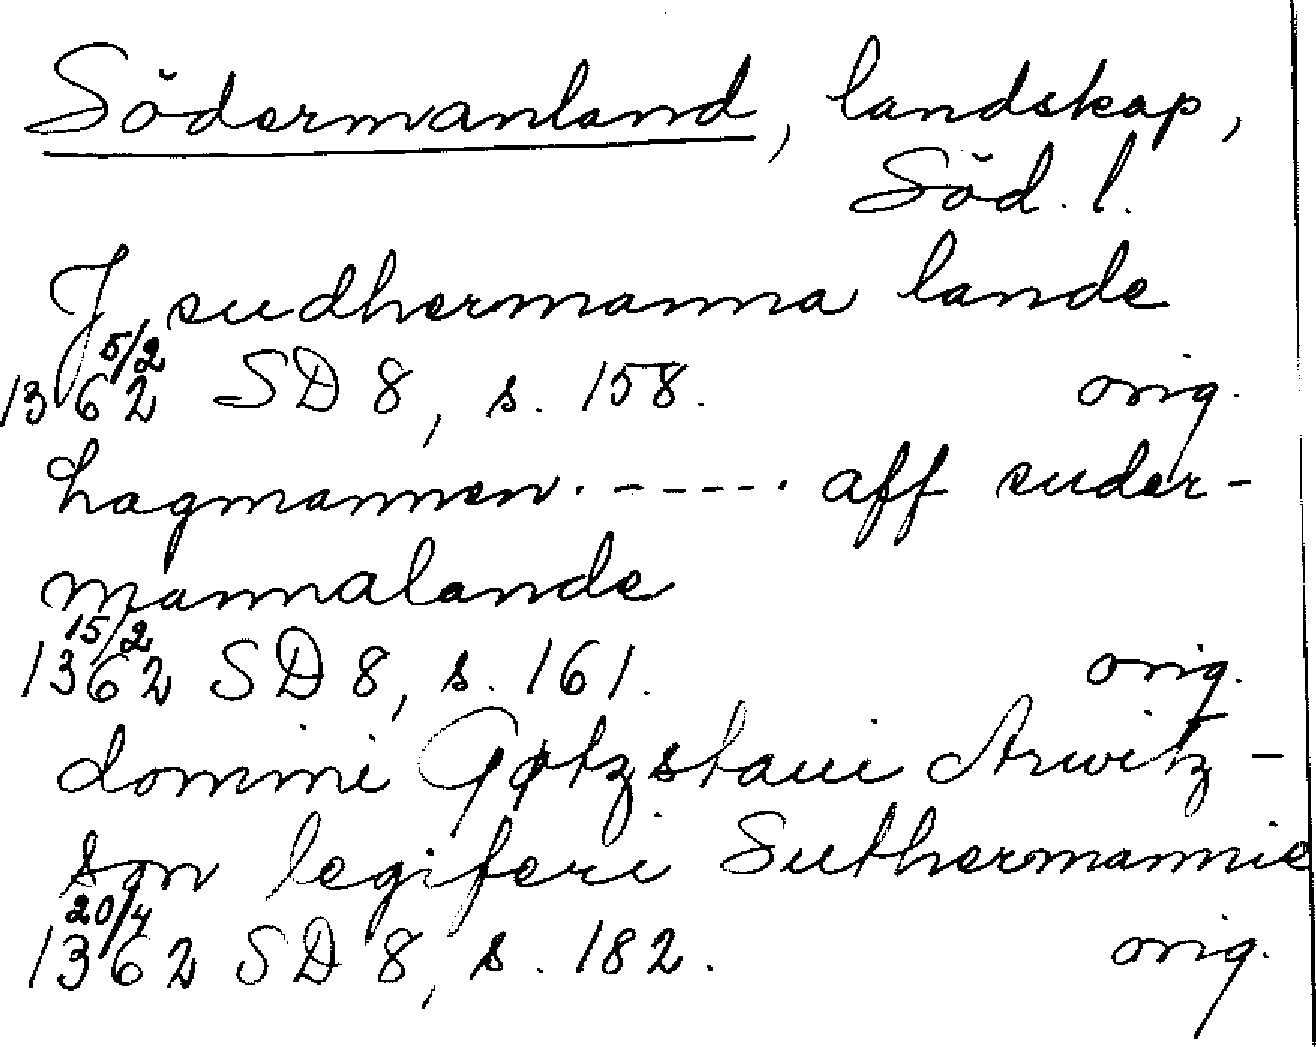 Södermanland, landskap,
Söd. l.
J sudhermanna lande
5/2
1362 SD 8, s. 158. orig.
hagmannen . - - - - - . aff suder-
mannalande
15/2
1362 SD 8, s. 161. orig.
domini Gøtzstaui Arwitz-
søn legiferi Suthermannie
20/4
1362 SD 8, s. 182. orig.